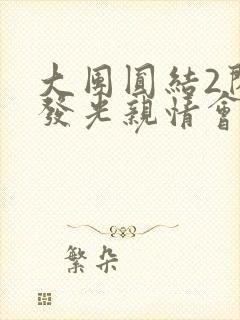 大周圓結2
發光親情會
繁朵